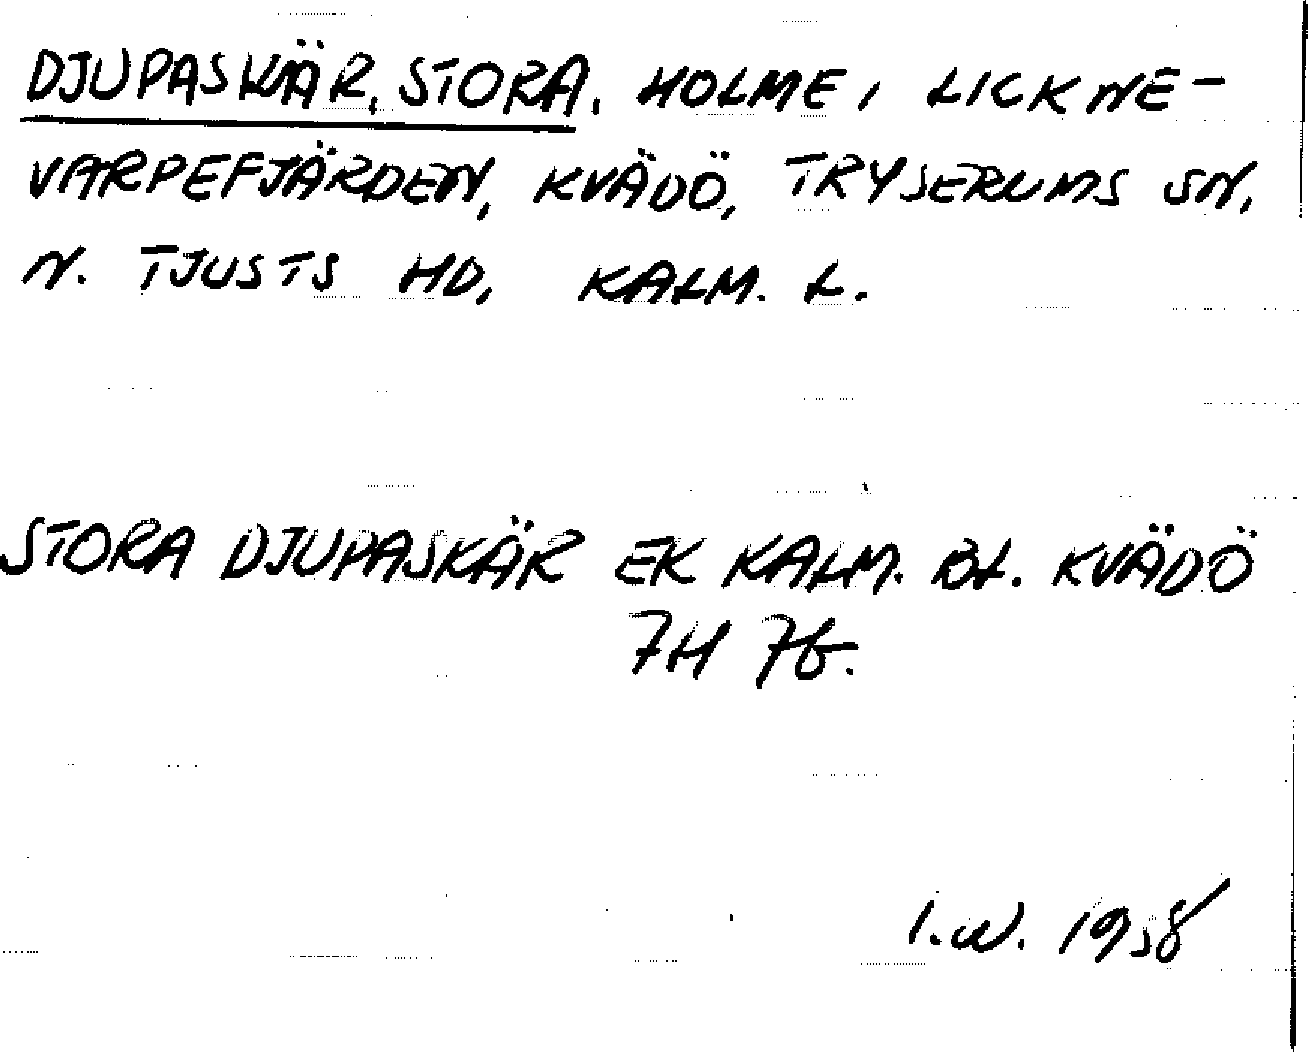 DJUPASKÄR, STORA. HOLME I LICKNE-
VARPEFJÄRDEN, KVÄDÖ, TRYSERUMS SN,
N. TJUSTS HD, KALM. L.
STORA DJUPASKÄR EK KALM. BL. KVÄDÖ
7H 7b.
I.W. 1958